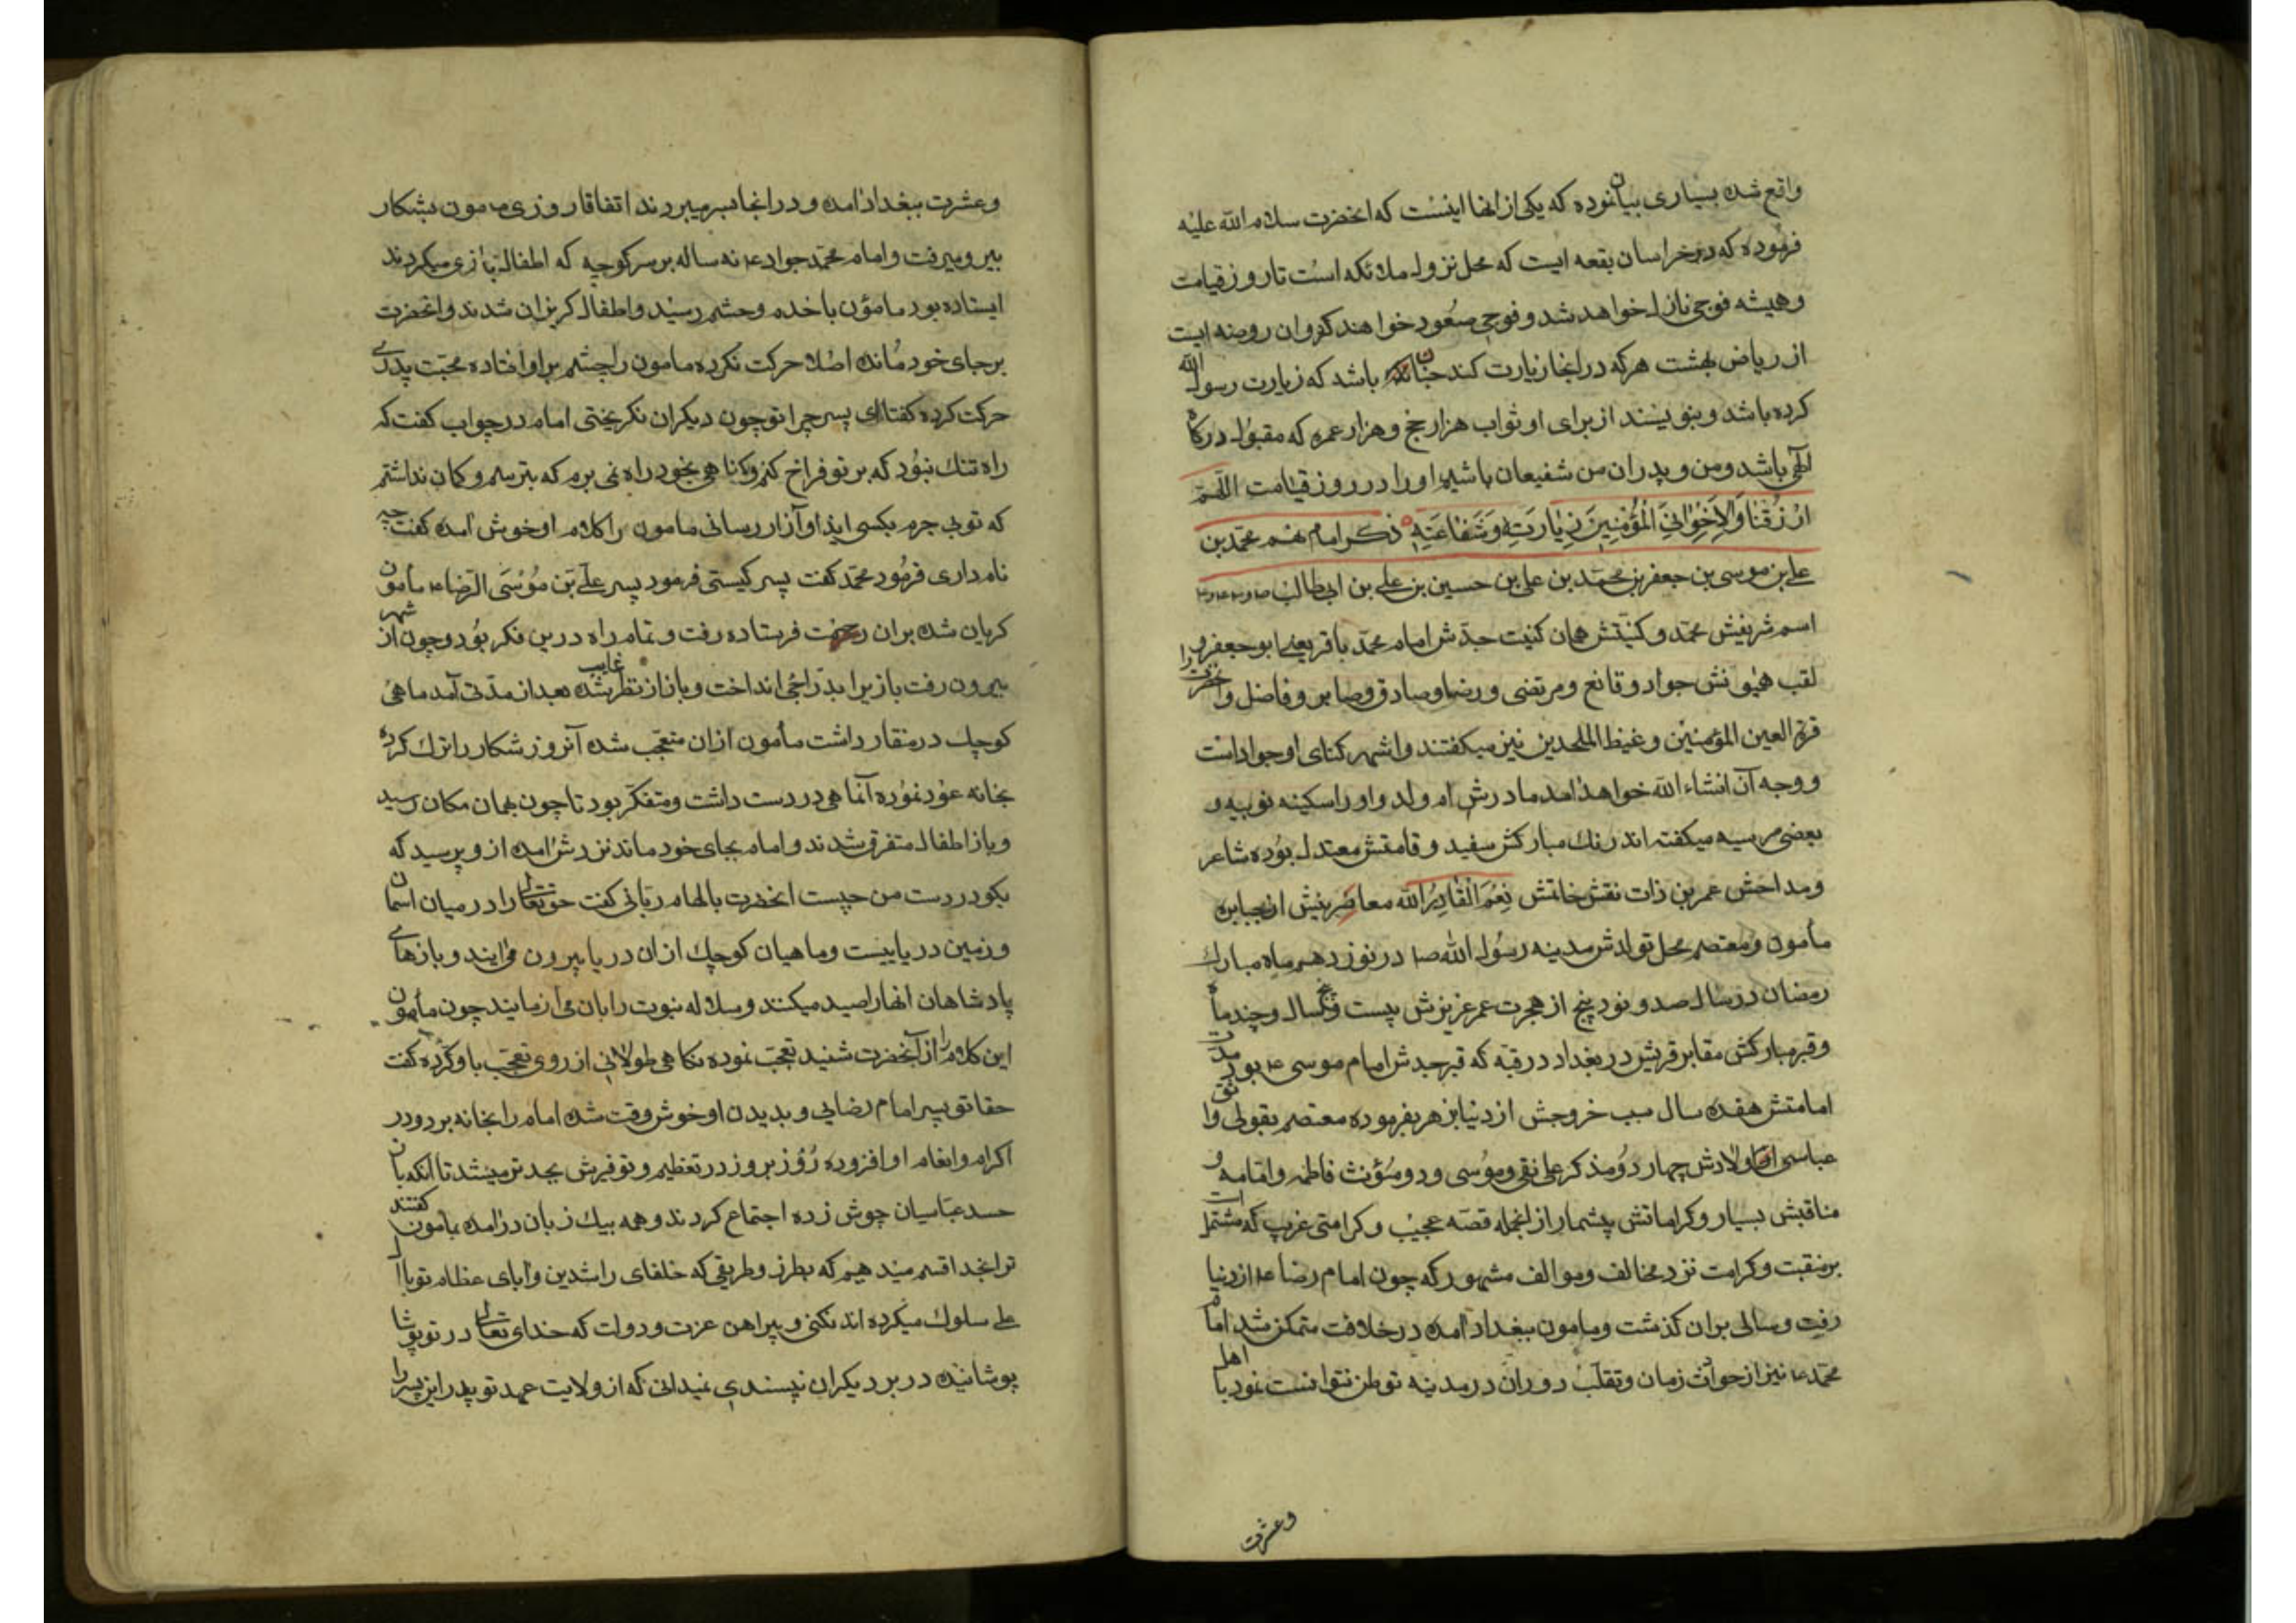 واقع شده بسیاری بیان نموده که یکی از انها اینست که انحضرت سلام الله علیه
فرموده که در خراسان بقعه ایست که محل نزول ملائکه است تا روز قیامت
و همیشه فوجی نازل خواهد شد و فوجی صعود خواهند کرد وان روضه ایست
از ریاض بهشت هرکه در انجا زیارت کند چنان باشد که زیارت رسول الله
کرده باشد و بنویسند از برای او ثواب هزار حج و هزار عمره که مقبول درکاه
الهی باشد و من و پدران من شفیعان باشیم او را در روز قیامت اللهم
ارْزُقنا وَلاِخواننِا الْمُؤْمنِینَ زِیارَتِهِ وَ شَفاعَتِهِ ذکر امام نهم محمد بن
علی بن موسی بن جعفر بن محمد بن علی بن حسین بن علی بن ابی طالب
اسم شریفش محمد و کنیتش همان کنیت جدش امام محمد باقر یعنی ابو جعفر و
لقب همیونش جواد و قانع و مرتضی و رضا و صادق و صابر و فاضل و انحضرت را
قرة العین المؤمنین و غیظ الملحدین نیز میکفتند و اشهر کنای او جوادست
و وجه آن انشاء الله خواهد امد مادرش ام ولد و او را سکینه نوبیه و
بعضی مرسیه میکفته اند رنك مبارکش سفید و قامتش معتدل بوده شاعر
و مداحش عمر بن ذات نقش خاتمش نِعْمَ الْقادِرُ الله معاصرینش از جبابره
مأمون و معتصم محل تولدش مدینه رسول الله ص در نوزدهم ماه مبارك
رمضان در سال صد و نود پنج از هجرت عمر عزیزش بیست و پنج سال و چند ماه
و قبر مبارکش مقابر قریش در بغداد در قبه که قبر جدش امام موسی ع بود مدت
امامتش هفده سال سبب خروجش از دنیا بزهر بفرموده معتصم بقولی واثق
عباسی اولادش چهار دو مذکر علی نقی و موسی و دو مؤنث فاطمه و امامه و
مناقبش بسیار و کراماتش بیشمار از انجمله قصه عجیب و کرامتی غریب که مشتمل است
بر منقبت و کرامت نزد مخالف و موالف مشهور که چون امام رضا ع از دنیا
رفت و سالی بران کذشت و مامون ببغداد امده در خلافت متمکن شد امام
محمد ع نیز از حوادث زمان و تقلب دوران در مدینه توطن نتوانست نمود با اهل
وعشرت
وعشرت ببغداد امده و در انجا بسر میبردند اتفاقا روزی مامون بشکار
بیرون میرفت و امام محمد جواد ع نه ساله بر سر کوچه که اطفال بازی میکردند
ایستاده بود مامؤن با خدم وحشم رسید و اطفال کریزان شدند و انحضرت
بر جای خود مانده اصلا حرکت نکرده مامون را چشم براو افتاده محبت پدری
حرکت کرده کفت ای پسر چرا تو چون دیکران نکریختی امام در جواب کفت که
راه تنك نبود که بر تو فراخ کنم و کناهی بخود راه نمی برم که بترسم و کمان نداشتم
که تو بی جرم بکسی ایذا و آزار رسانی مامون را کلام او خوش امده کفت چه
نام داری فرمود محمد کفت پسر کیستی فرمود پسر علی بن موسی الرضا ع مأمون
کریان شده بران رحمت فرستاده رفت و تمام راه درین فکر بود و چون از شهر
بیرون رفت باز برا بدراجی انداخت و باز از نظر غایب شده بعد از مدتی آمد ماهی
کوچك در منقار داشت مأمون ازان متعجب شده آنروز شکار را ترك کرده
بخانه عود نموده آنماهی در دست داشت و متفکر بود تا چون بهمان مکان رسید
و باز اطفال متفرق شدند و امام بجای خود ماند نزدش امده ازو پرسید که
بکو در دست من چیست انحضرت بالهام ربانی کفت حق تعالی را در میان اسمان
و زمین دریاییست و ماهیان کوچك ازان دریا بیرون می ایند و بازهای
پادشاهان انها را صید میکنند و سلاله نبوت را بان می ازمایند چون مأمون
این کلام را از آنحضرت شنید تعجب نموده نکاهی طولانی از روی تعجب باو کرده کفت
حقا تو پسر امام رضایی و بدیدن او خوش وقت شده امام را بخانه برد و در
اکرام و انعام او افزوده رُوز بروز در تعظیم و توقیرش بجد تر میشد تا انکه بان
حسد عباسیان جوش زده اجتماع کردند و همه بیك زبان در امده بمامون کفتند
ترا بخدا قسم میدهیم که بطرز و طریقی که خلفای راشدین و آبای عظام تو با ال
علی سلوك میکرده اند نکنی و پیراهن عزت و دولت که خدای تعالی در تو پوشا
پوشانیده در بر دیکران نپسندی نمیدانی که از ولایت عهد تو پدر این پسر را